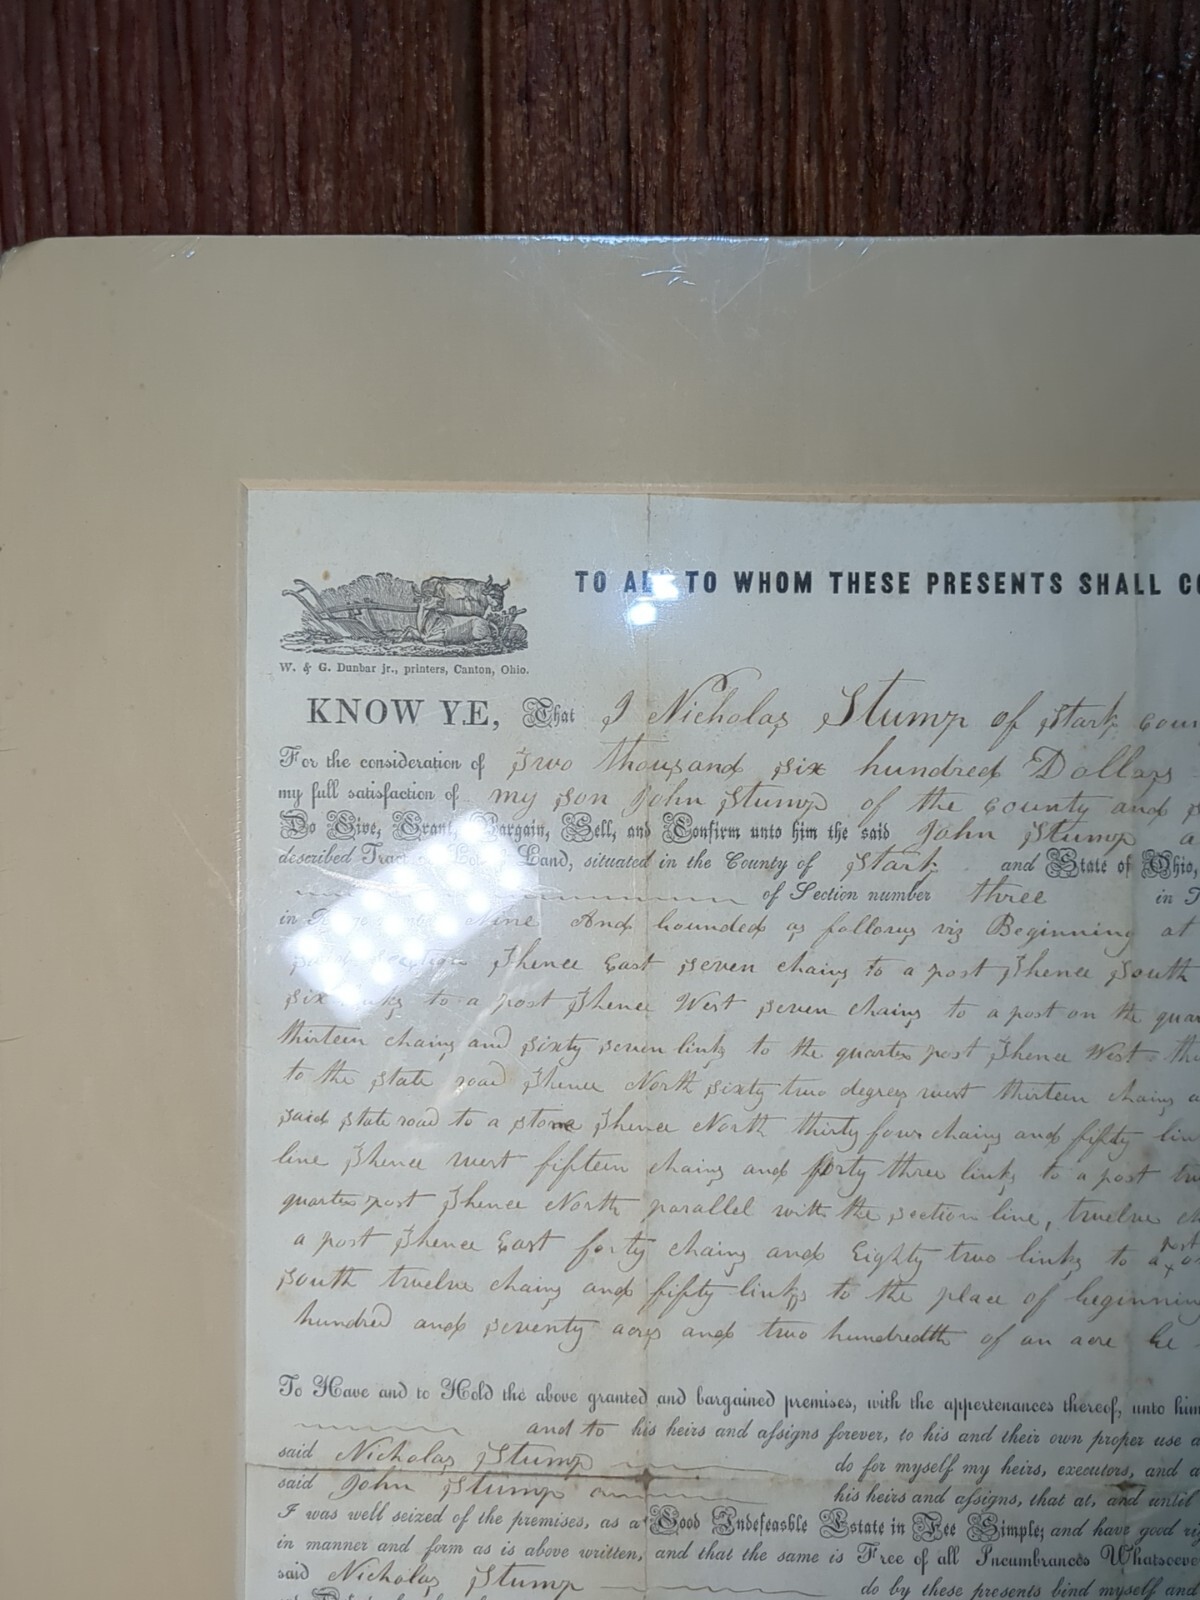 TO ALL TO WHOM THESE PRESENTS SHALL CO
W. & G. Dunbar Jr., printers, Canton, Ohio.
KNOW YE, That I Nicholas Stump of Stark coun
For the consideration of Two thousand six hundred Dollars
my full satisfaction of my son John Stump of the county and s
Do Give, Grant, Bargain, Sell, and Confirm unto him the said John Stump a
described Tract Land, situated in the County of Stark and State of Ohio,
of Section number three in T
in Nine And bounded as follows viz Beginning at
Section Thence East seven chains to a post Thence South
six links to a post Thence West seven chains to a post on the quar
thirteen chains and sixty seven links to the quarter post Thence West
to the State road Thence North sixty two degrees west thirteen chains a
said state road to a stone Thence North thirty four chains and fifty lin
line Thence west fifteen chains and forty three links to a post tw
quarter post Thence North parallel with the section line, twelve ch
a post Thence East forty chains and Eighty two links to a post on
south twelve chains and fifty links to the place of beginning
hundred and seventy acres and two hundredth of an acre be
To Have and to Hold the above granted and bargained premises, with the appertenances thereof, unto him
and to his heirs and assigns forever, to his and their own proper use a
said Nicholas Stump do for myself my heirs, executors, and a
said John Stump his heirs and assigns, that at, and until
I was well seized of the premises, as a Good Indefeasible Estate in Fee Simple; and have good ri
in manner and form as is above written, and that the same is Free of all Incumbrances Whatsoeve
said Nicholas Stump do by these presents bind myself and